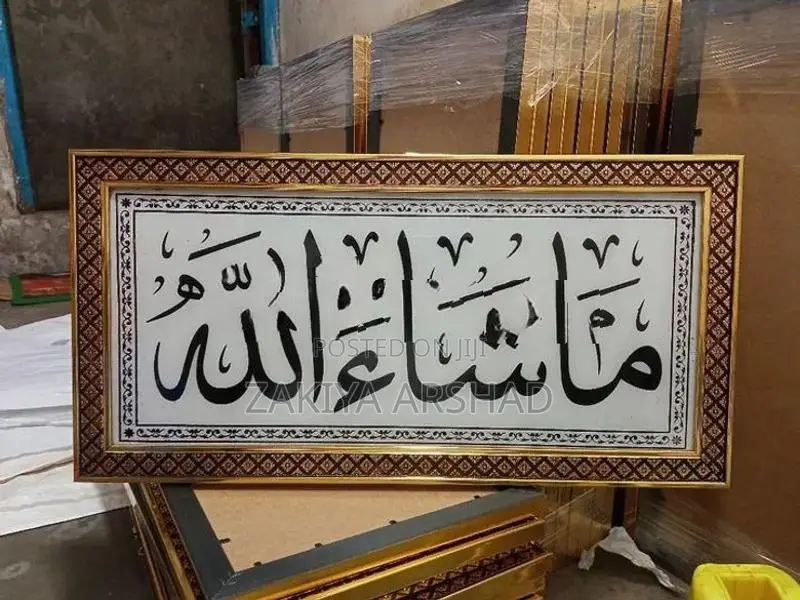 ما شاء الله
POSTED ON JIJI
ZAKIYA ARSHAD